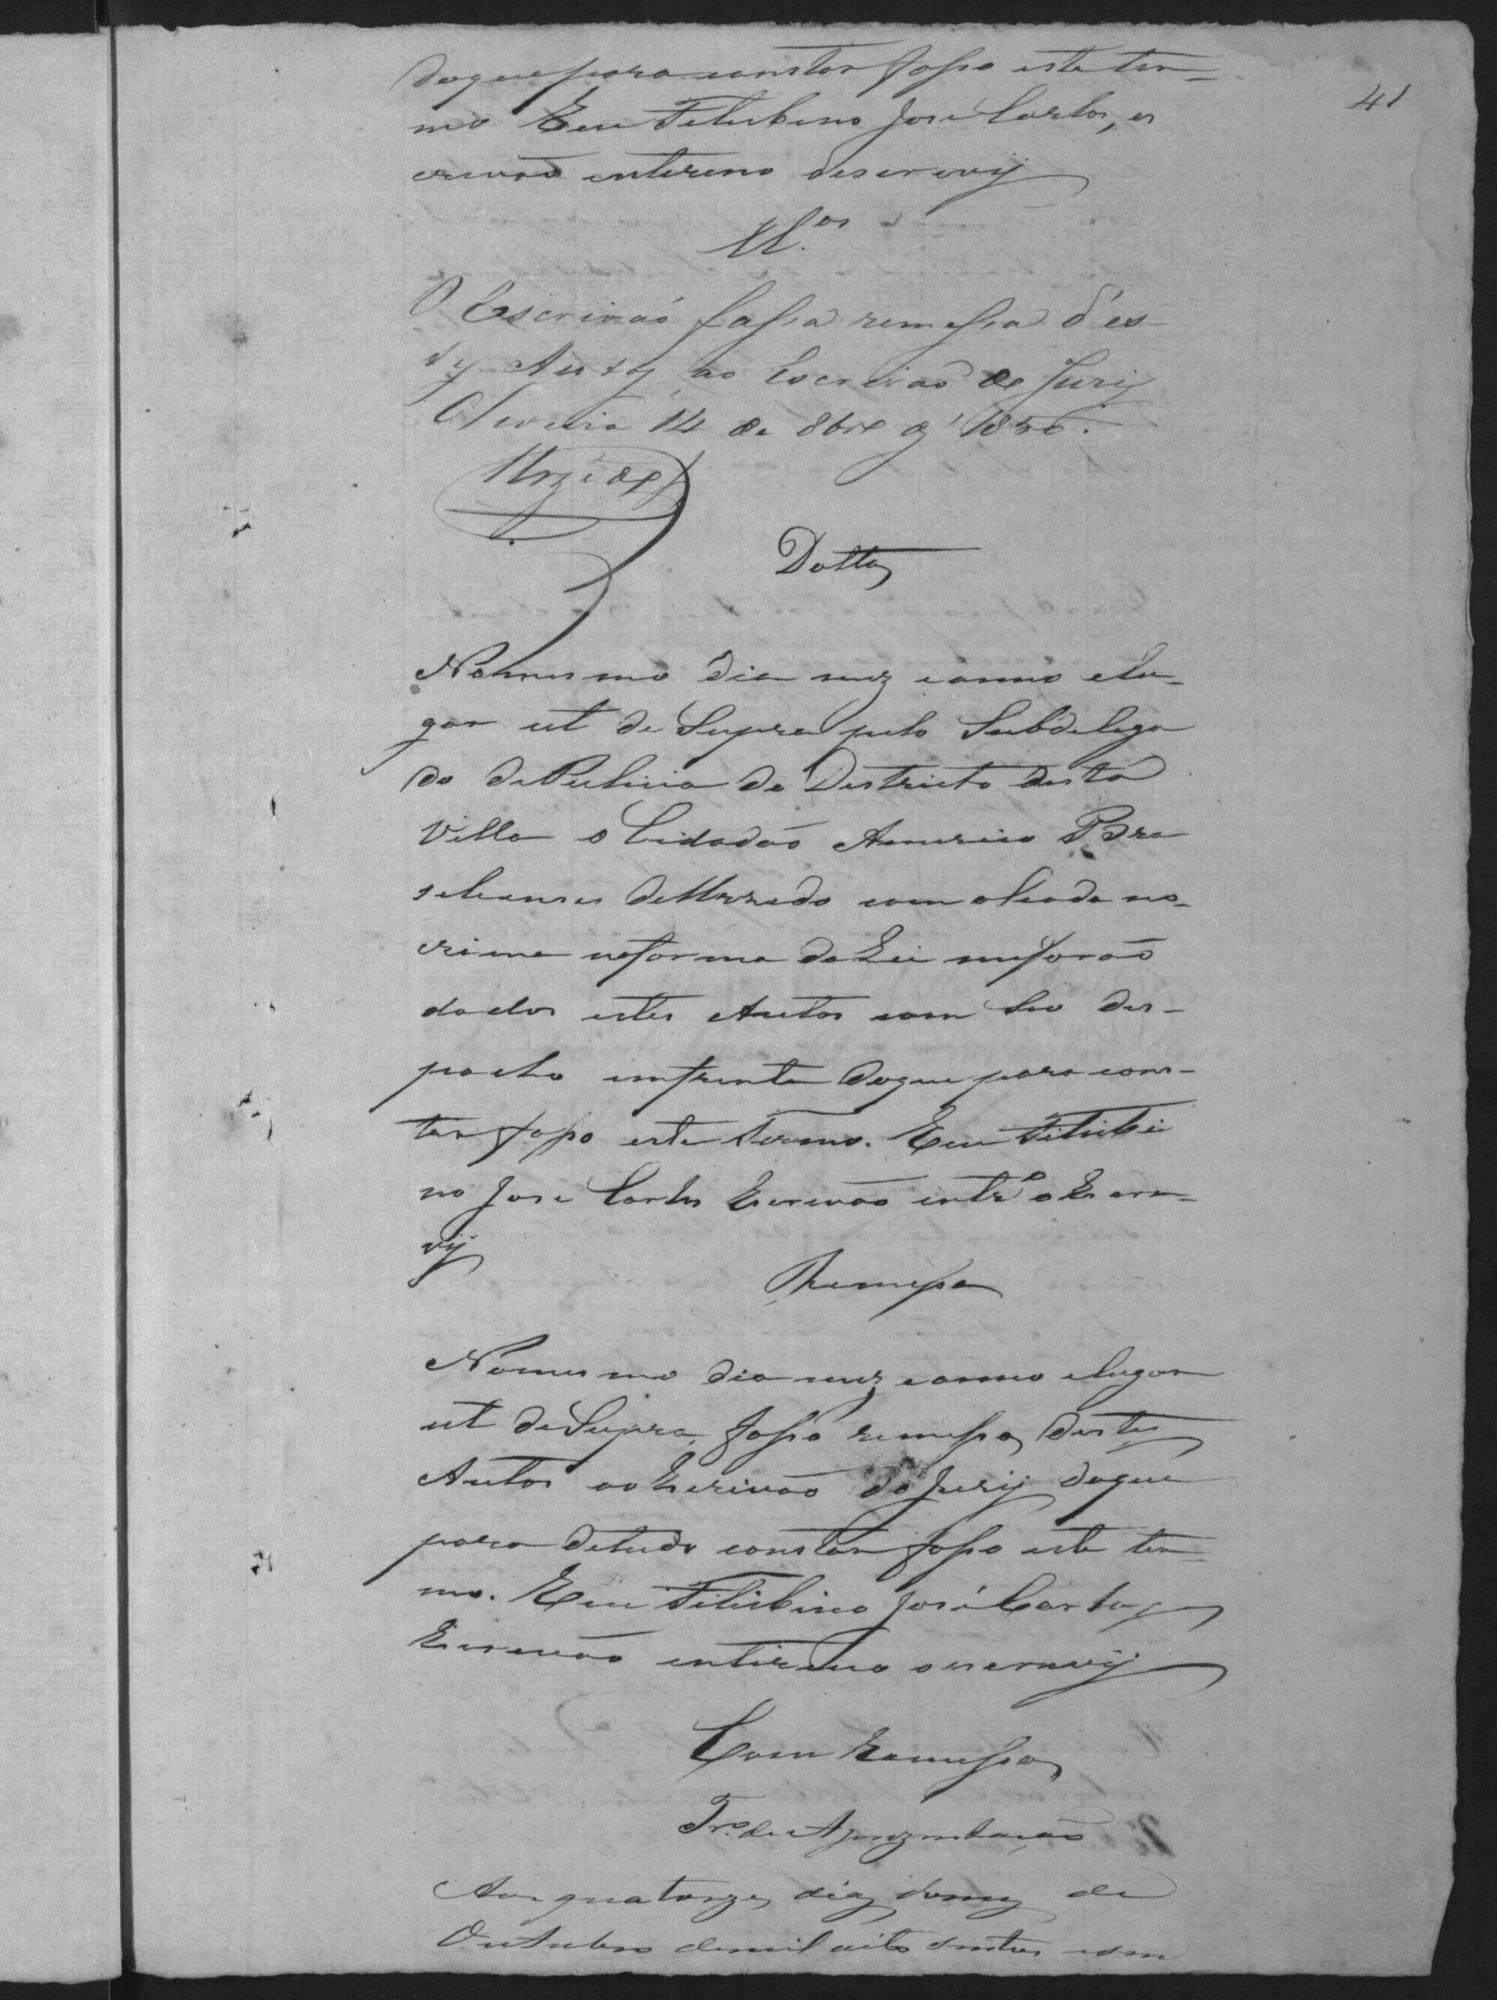 41
doque para constar fasso este ter-
mo Eu Felisbino José Carlos, es
crivaõ entereno oescrevij
Cl.os
O Escrivaõ fassa remessa d'es-
ty Auty ao Escrivaõ do Jurij
Oliveira 14 de 8bro d' 1850.
Datta
No mesmo dia mez eanno elu-
gar ut de Supra pelo Subdelega
do de Pulicia do Destricto desta
Villa o Cidadaõ Americo Bra
seliences de com alsada no
crime naforma da Lei meforaõ
dados estes Autos com seo des-
pacho emfrente doque para cons-
tar fasso este termo. Eu Felisbi
no Jose Carlos Escrivaõ entr.o o Escre-
vij
Remessa
Nomesmo dia mez eanno elugar
ut de Supra, fasso remessa desty
Autos ao Escrivaõ do Jurij doque
para detudo constar fasso este ter
mo. Eu Felisbino José Carlos
Escrivaõ entereno oescrevij
Com Remessa
Tr.o de Aprezentaçaõ
Aos quatorze dias do mez de
Outubro demil oito sentos e sin